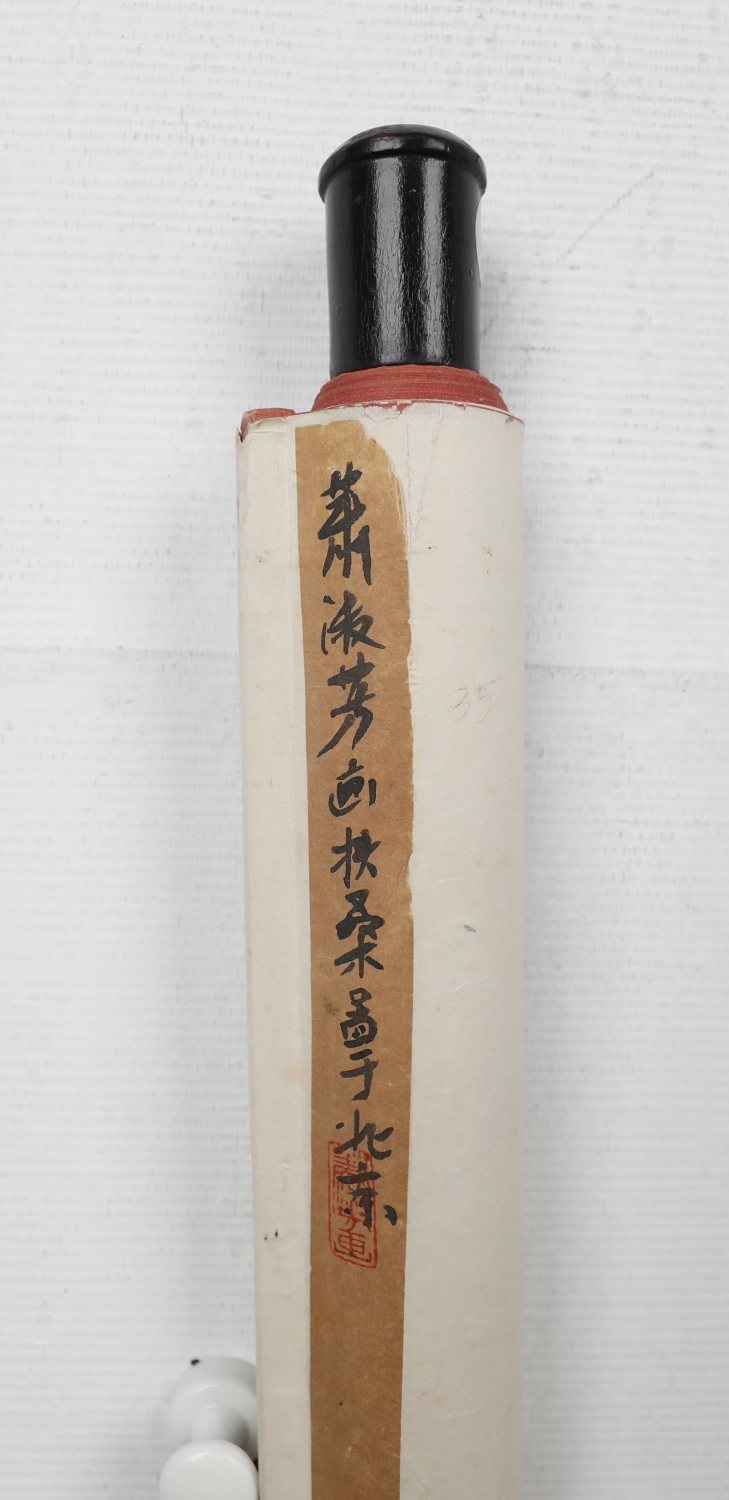 萧淑芳画扶桑啚于北京
35